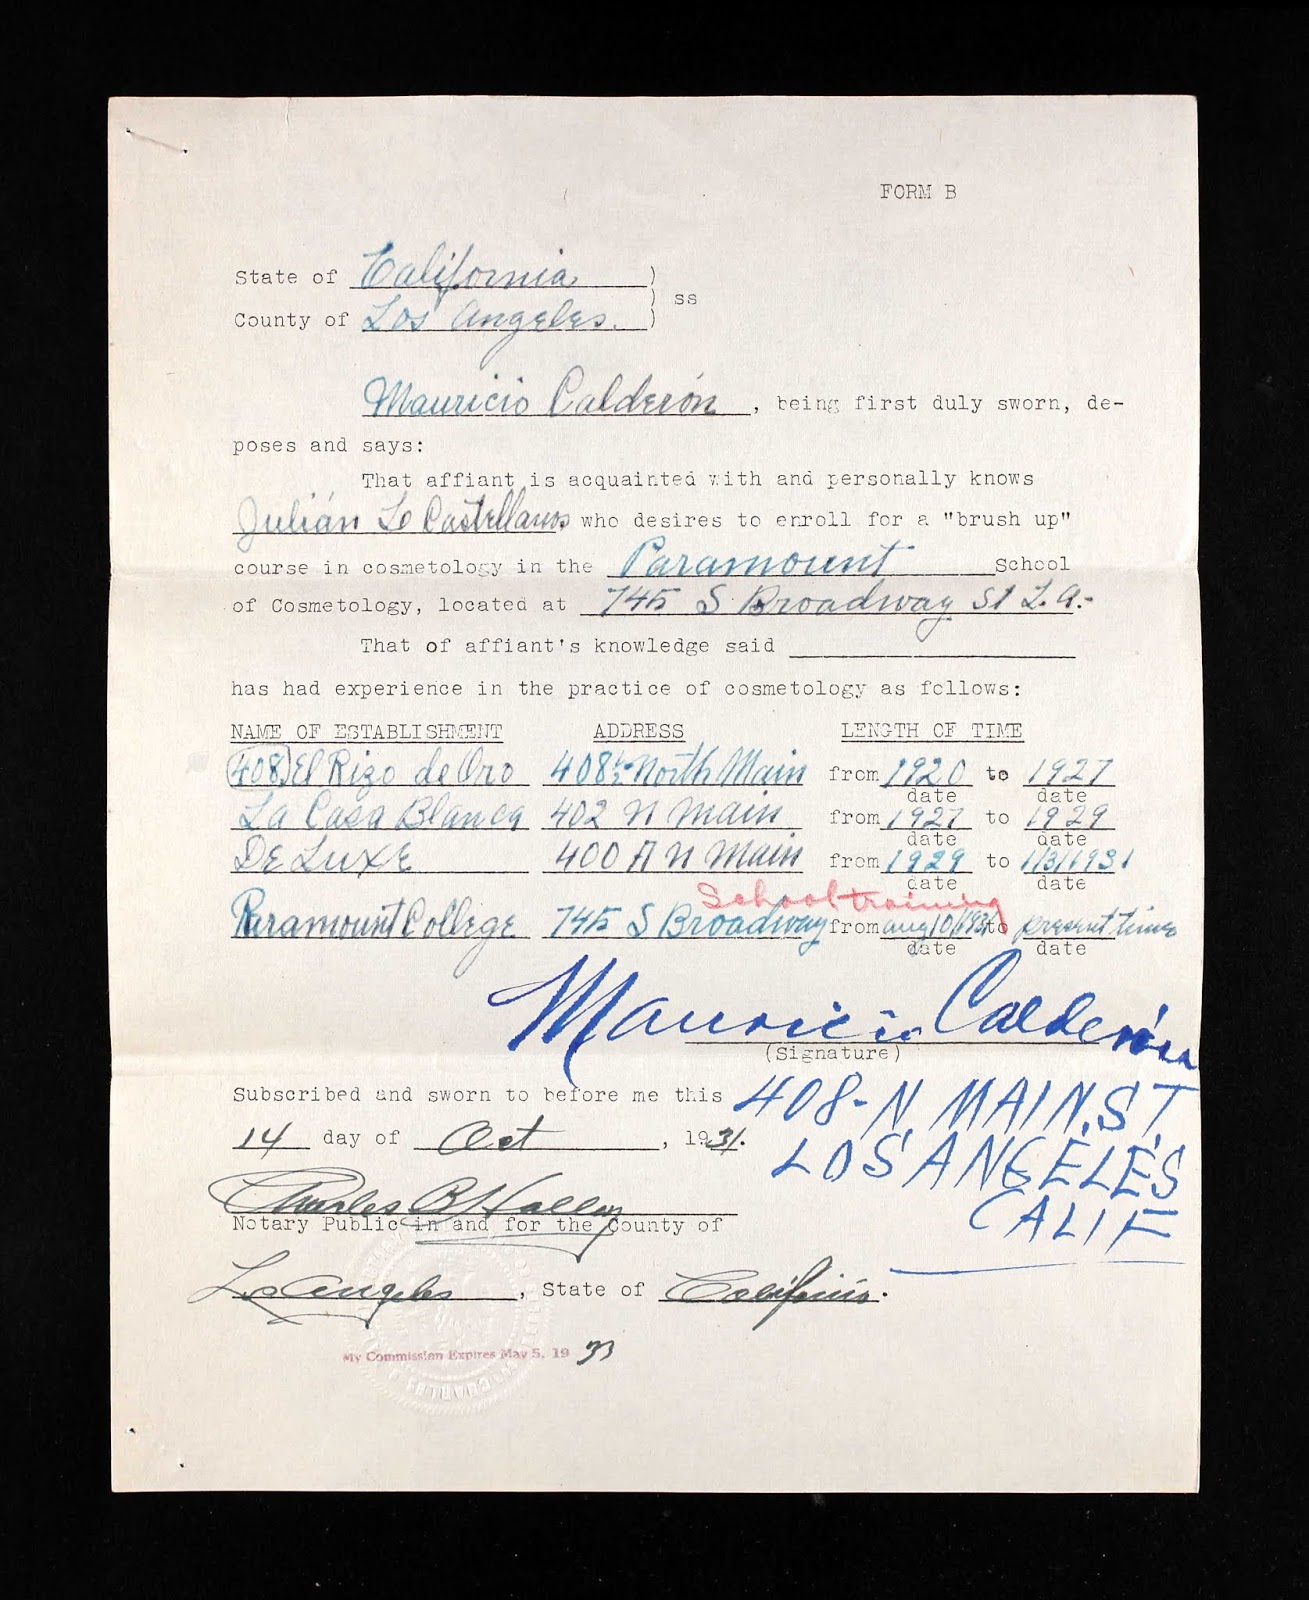 FORM B
State of California )
) ss
County of Los Angeles. )
Mauricio Calderón, being first duly sworn, de-
poses and says:
That affiant is acquainted with and personally knows
Julián Lo Castellanos who desires to enroll for a "brush up"
course in cosmetology in the Paramount School
of Cosmetology, located at 745 S Broadway St L.A.-
That of affiant's knowledge said
has had experience in the practice of cosmetology as follows:
NAME OF ESTABLISHMENT ADDRESS LENGTH OF TIME
408 El Rizo de Oro 408½ North Main from 1920 to 1927
date date
La Casa Blanca 402 N Main from 1927 to 1929
date date
De Luxe 400 A N Main from 1929 to 1/31/1931
date date
School training
Paramount College 745 S Broadway from aug 10/1931 to present time
date date
Mauricio Calderón
(Signature)
Subscribed and sworn to before me this 408-N. MAIN.ST.
14 day of Oct, 1931. LOS ANGELES
CALIF
Charles B
Notary Public in and for the County of
Los Angeles, State of California.
My Commission Expires May 5, 1933